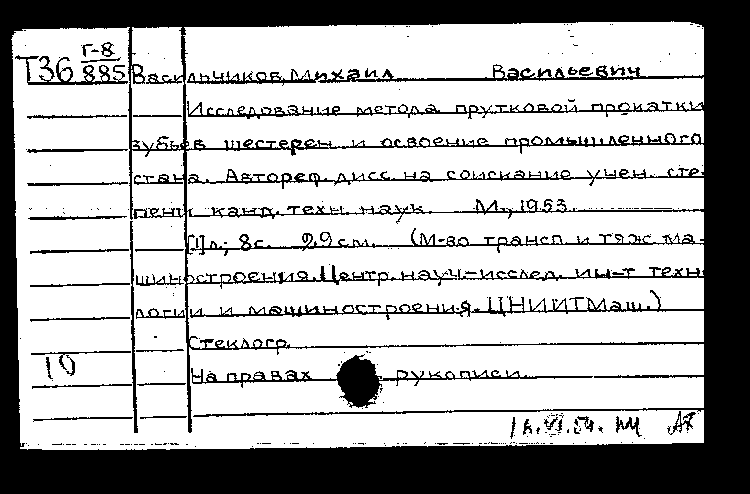 Г-8
Т36 885 Васильчиков, Михаил Васильевич
Исследование метода прутковой прокатки
зубьев шестерен и освоение промышленного
стана. Автореф. дисс. на соискание учен. сте-
пени канд. техн. наук. М., 1953.
[1]л; 8с. 29см. (М-во трансп. и тяж. ма-
шиностроения. Центр. науч.-исслед. ин-т техно
логии и машиностроения. ЦНИИТМаш.)
Стеклогр.
10
На правах рукописи.